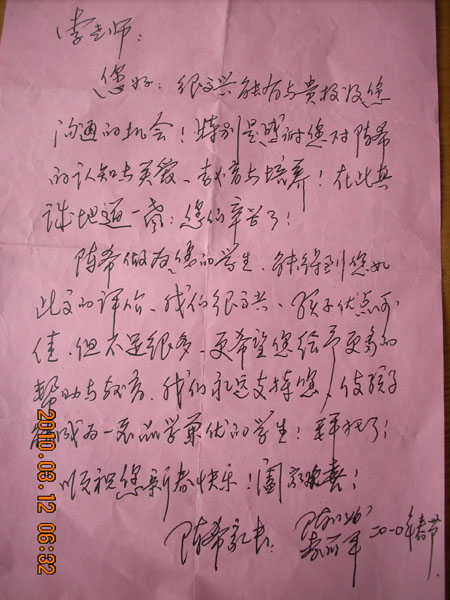 李老师:
您好: 很高兴能有与贵校及您
沟通的机会! 特别是感谢您对陈希
的认知与关爱、教育与培养! 在此真
诚地道一声: 您们辛苦了!
陈希做为您的学生、能得到您如
此之的评价、我们很高兴、孩子优点可
佳、但不是很多、更希望您给予更多的
帮助与教育、我们永远支持您、使孩子
成为一名品学兼优的学生! 拜托了!
顺祝您新春快乐! 阖家欢喜!
陈希家长: 二〇一〇年春节
2010.03.12 06:32